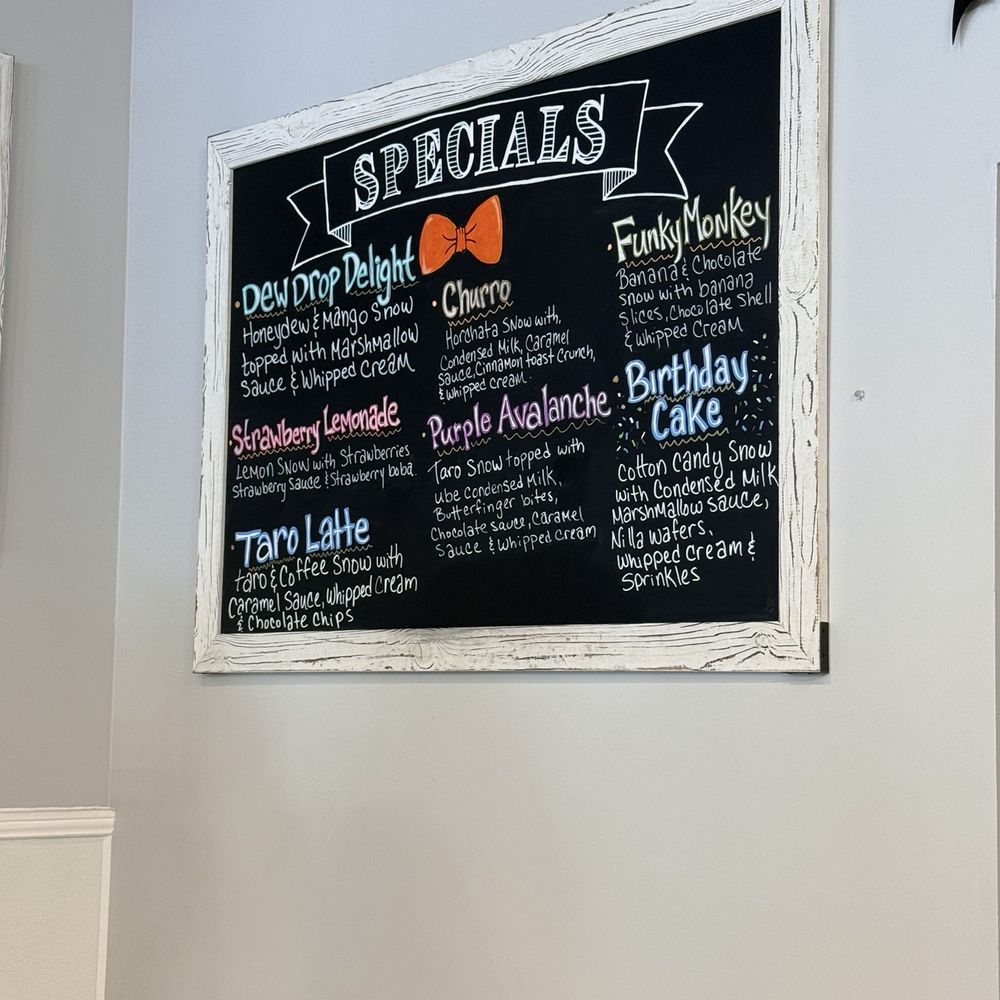 SPECIALS
Dew Drop Delight
Honeydew & Mango Snow
topped with Marshmallow
Sauce & Whipped Cream
Strawberry Lemonade
Lemon Snow with Strawberries
Strawberry Sauce & Strawberry boba.
Taro Latte
taro & Coffee Snow with
Caramel Sauce, Whipped Cream
& Chocolate chips
Churro
Horchata Snow with,
Condensed Milk, Caramel
sauce, Cinnamon toast Crunch,
& whipped cream.
Purple Avalanche
Taro Snow topped with
ube condensed Milk,
Butterfinger bites,
Chocolate sauce, Caramel
Sauce & Whipped Cream
Funky Monkey
Banana & Chocolate
snow with banana
slices, Chocolate Shell
& Whipped Cream
Birthday
Cake
Cotton Candy Snow
with Condensed Milk
Marshmallow sauce,
Nilla wafers,
whipped cream &
Sprinkles